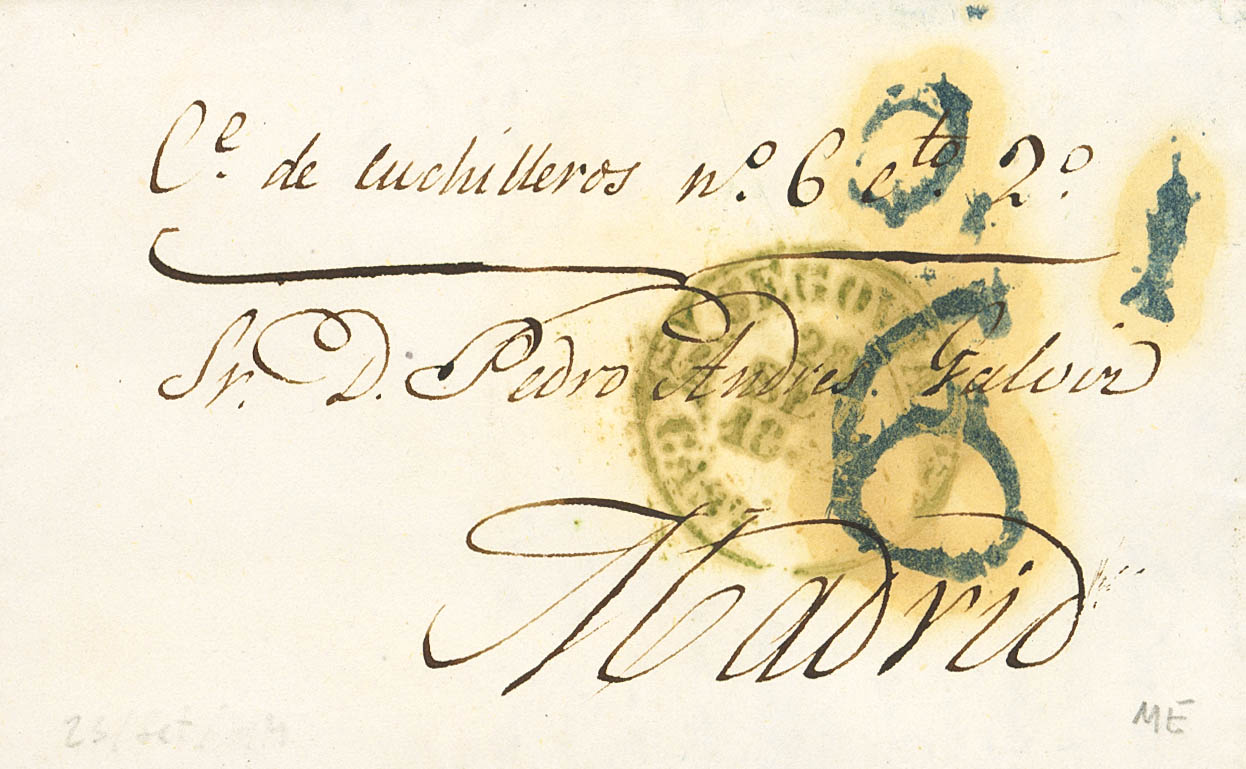 Cᵉ. de cuchilleros nº. 6 cᵗᵒ. 2º.
Sr. D. Pedro Andres Galvin
Madrid
SEGOVIA
6
ME